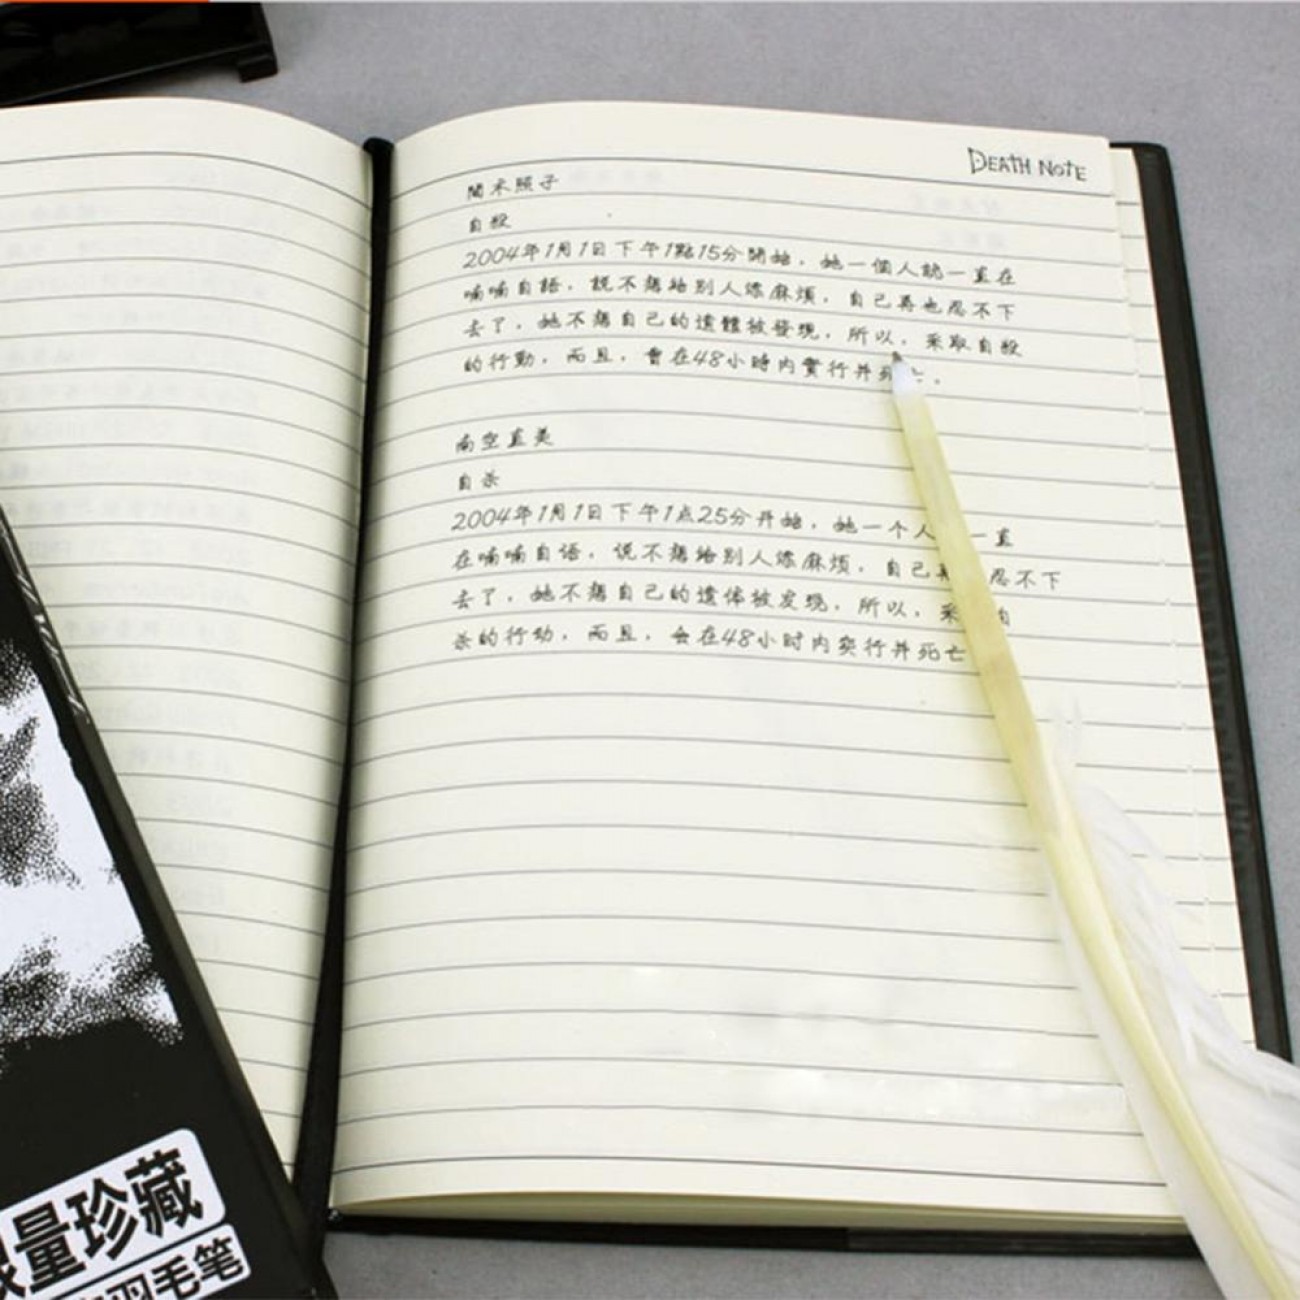 DEATH NOTE
間木照子
自殺
2004年1月1日下午1點15分開始，她一個人就一直在
喃喃自語，說不想給別人添麻煩，自己再也忍不下
去了，她不想自己的遺體被發現，所以，采取自殺
的行動，而且，會在48小時内實行并死亡．
南空直美
自杀
2004年1月1日下午1点25分开始，她一个人 一直
在喃喃自语，说不想给别人添麻烦，自己再 忍不下
去了，她不想自己的遗体被发现，所以，采
杀的行动，而且，会在48小时内实行并死亡
量珍藏
羽毛笔